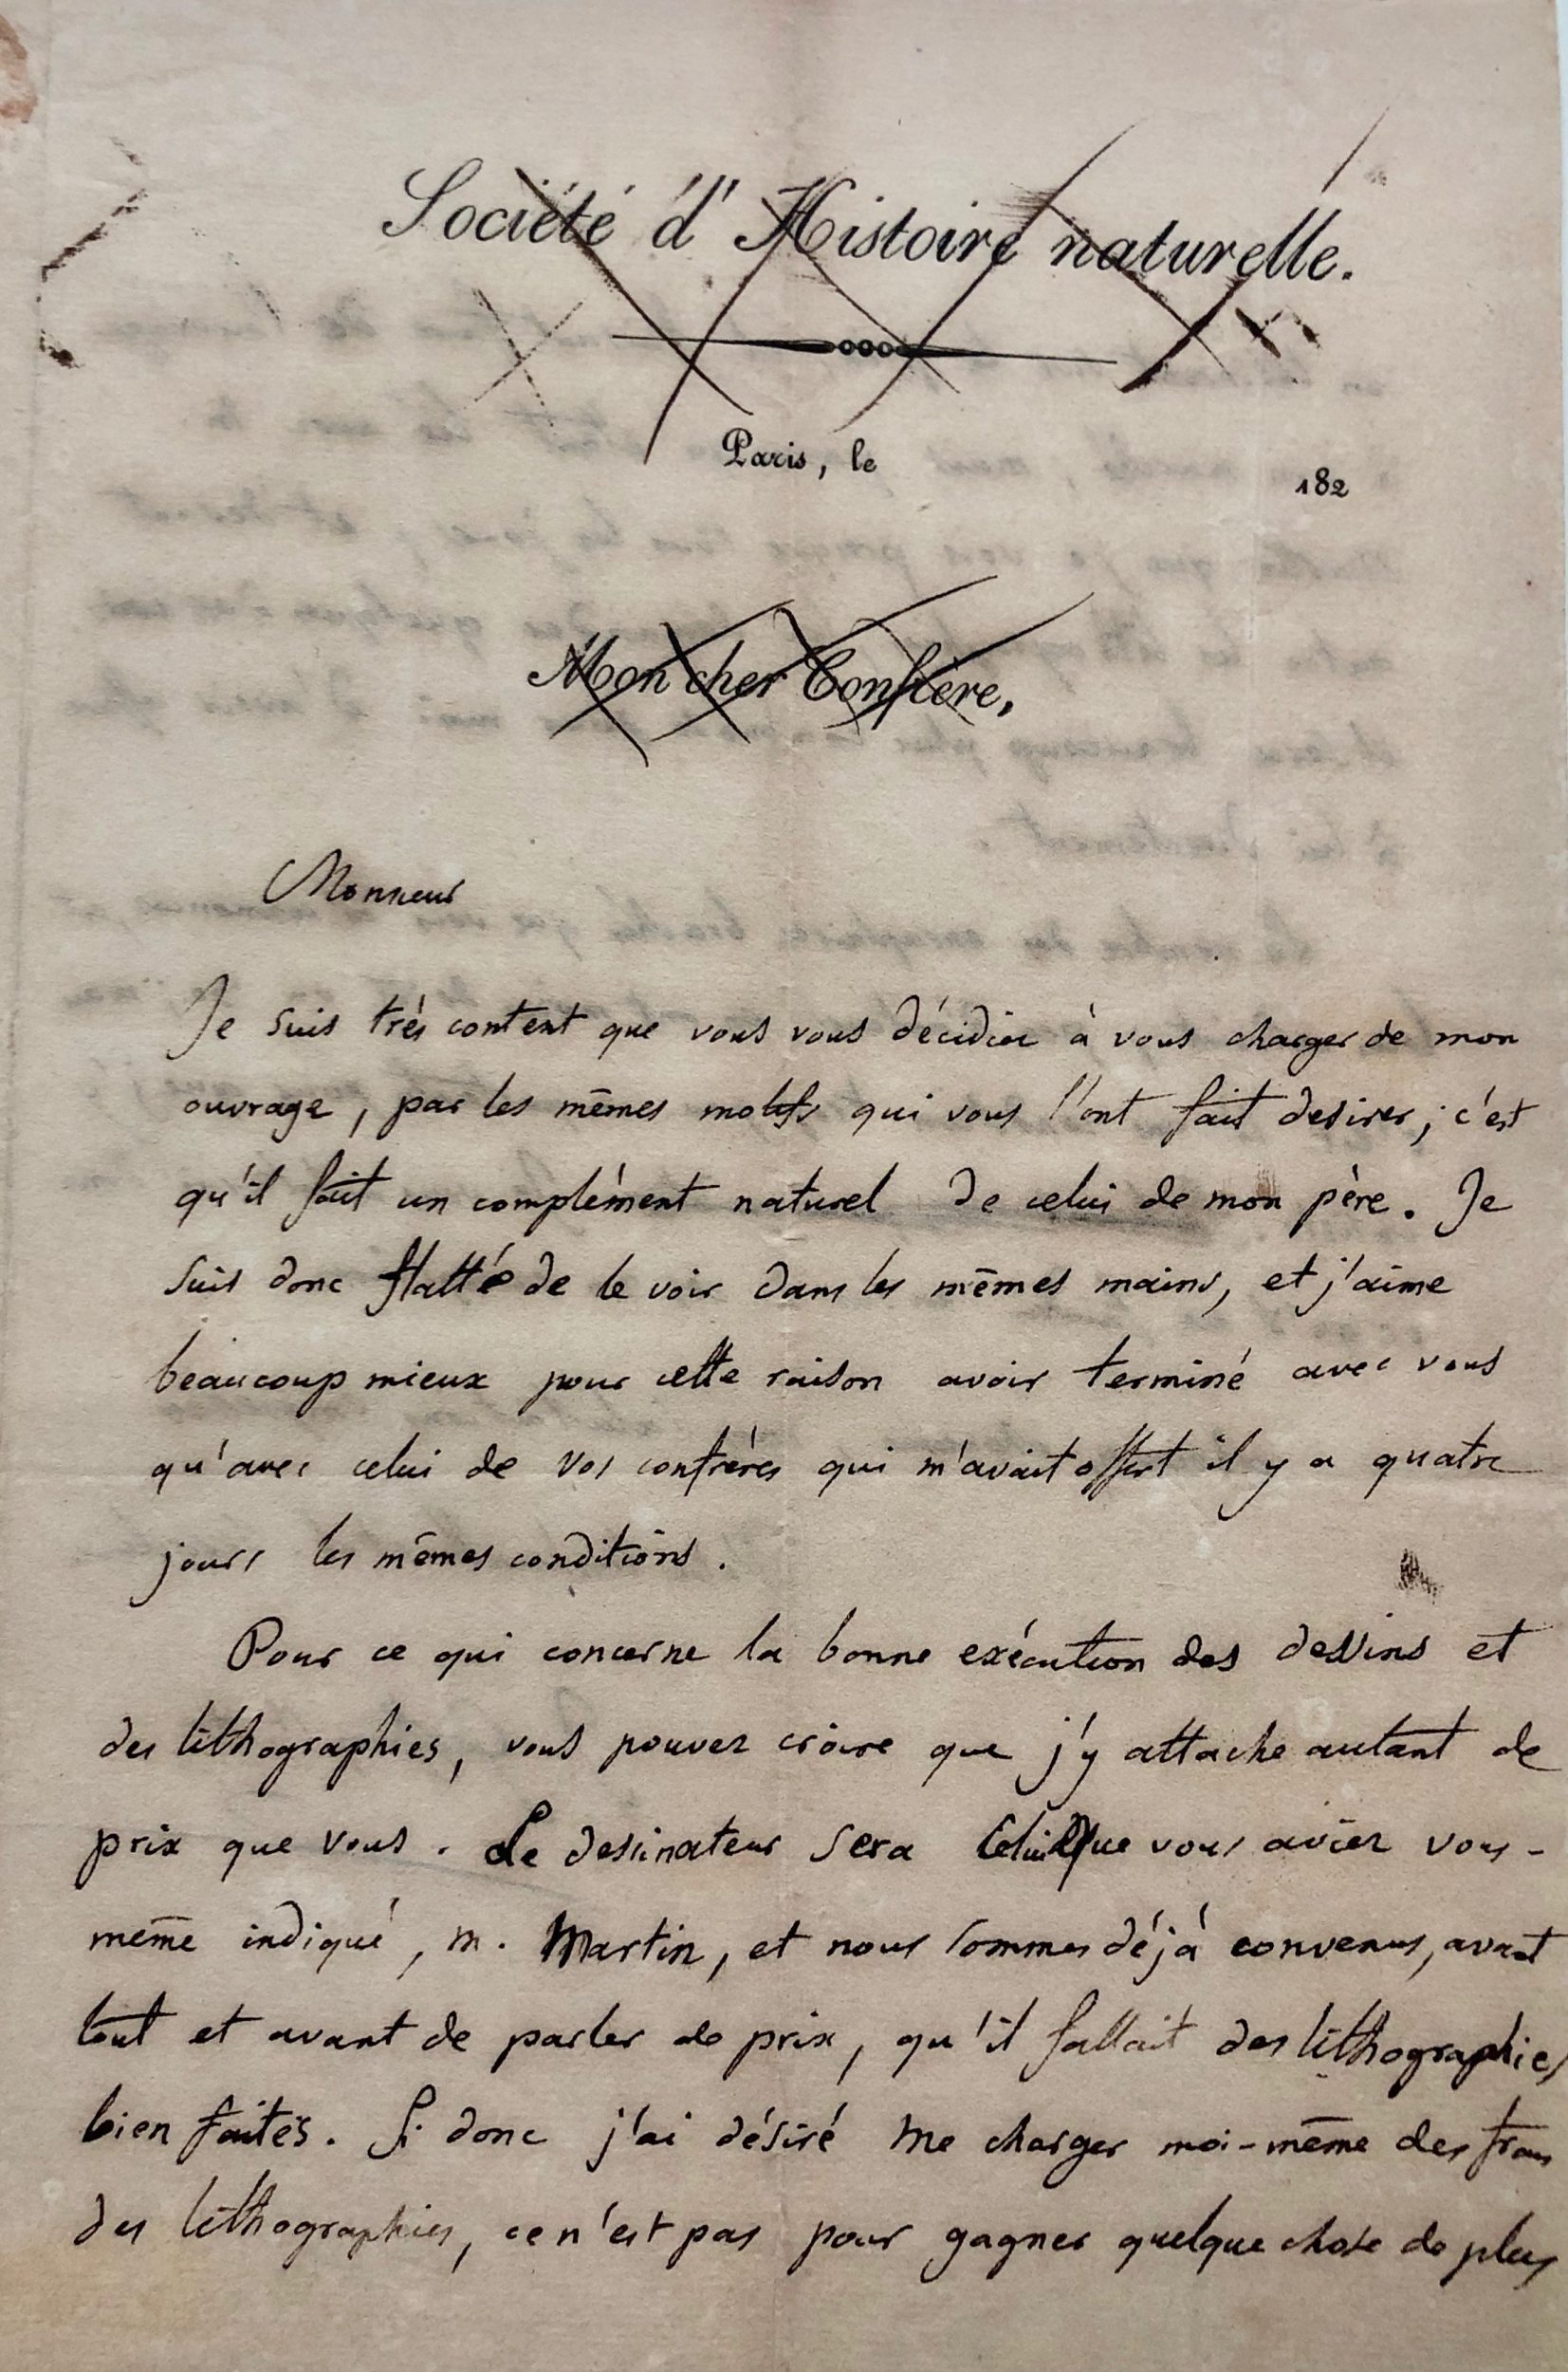 Société d'Histoire naturelle.
Paris, le 182
Mon cher Confrère,
Monsieur
Je suis très content que vous vous décidiez à vous charger de mon
ouvrage, par les mêmes motifs qui vous l'ont fait desirer; c'est
qu'il fait un complément naturel de celui de mon père. Je
suis donc flatté de le voir dans les mêmes mains, et j'aime
beaucoup mieux pour cette raison avoir terminé avec vous
qu'avec celui de vos confrères qui m'avait offert il y a quatre
jours les mêmes conditions.
Pour ce qui concerne la bonne exécution des dessins et
des lithographies, vous pouvez croire que j'y attache autant de
prix que vous. Le dessinateur sera celui que vous aviez vous-
même indiqué, m. Martin, et nous sommes déjà convenus, avant
tout et avant de parler de prix, qu'il fallait des lithographies
bien faites. Si donc j'ai désiré me charger moi-même des frais
des lithographies, ce n'est pas pour gagner quelque chose de plus